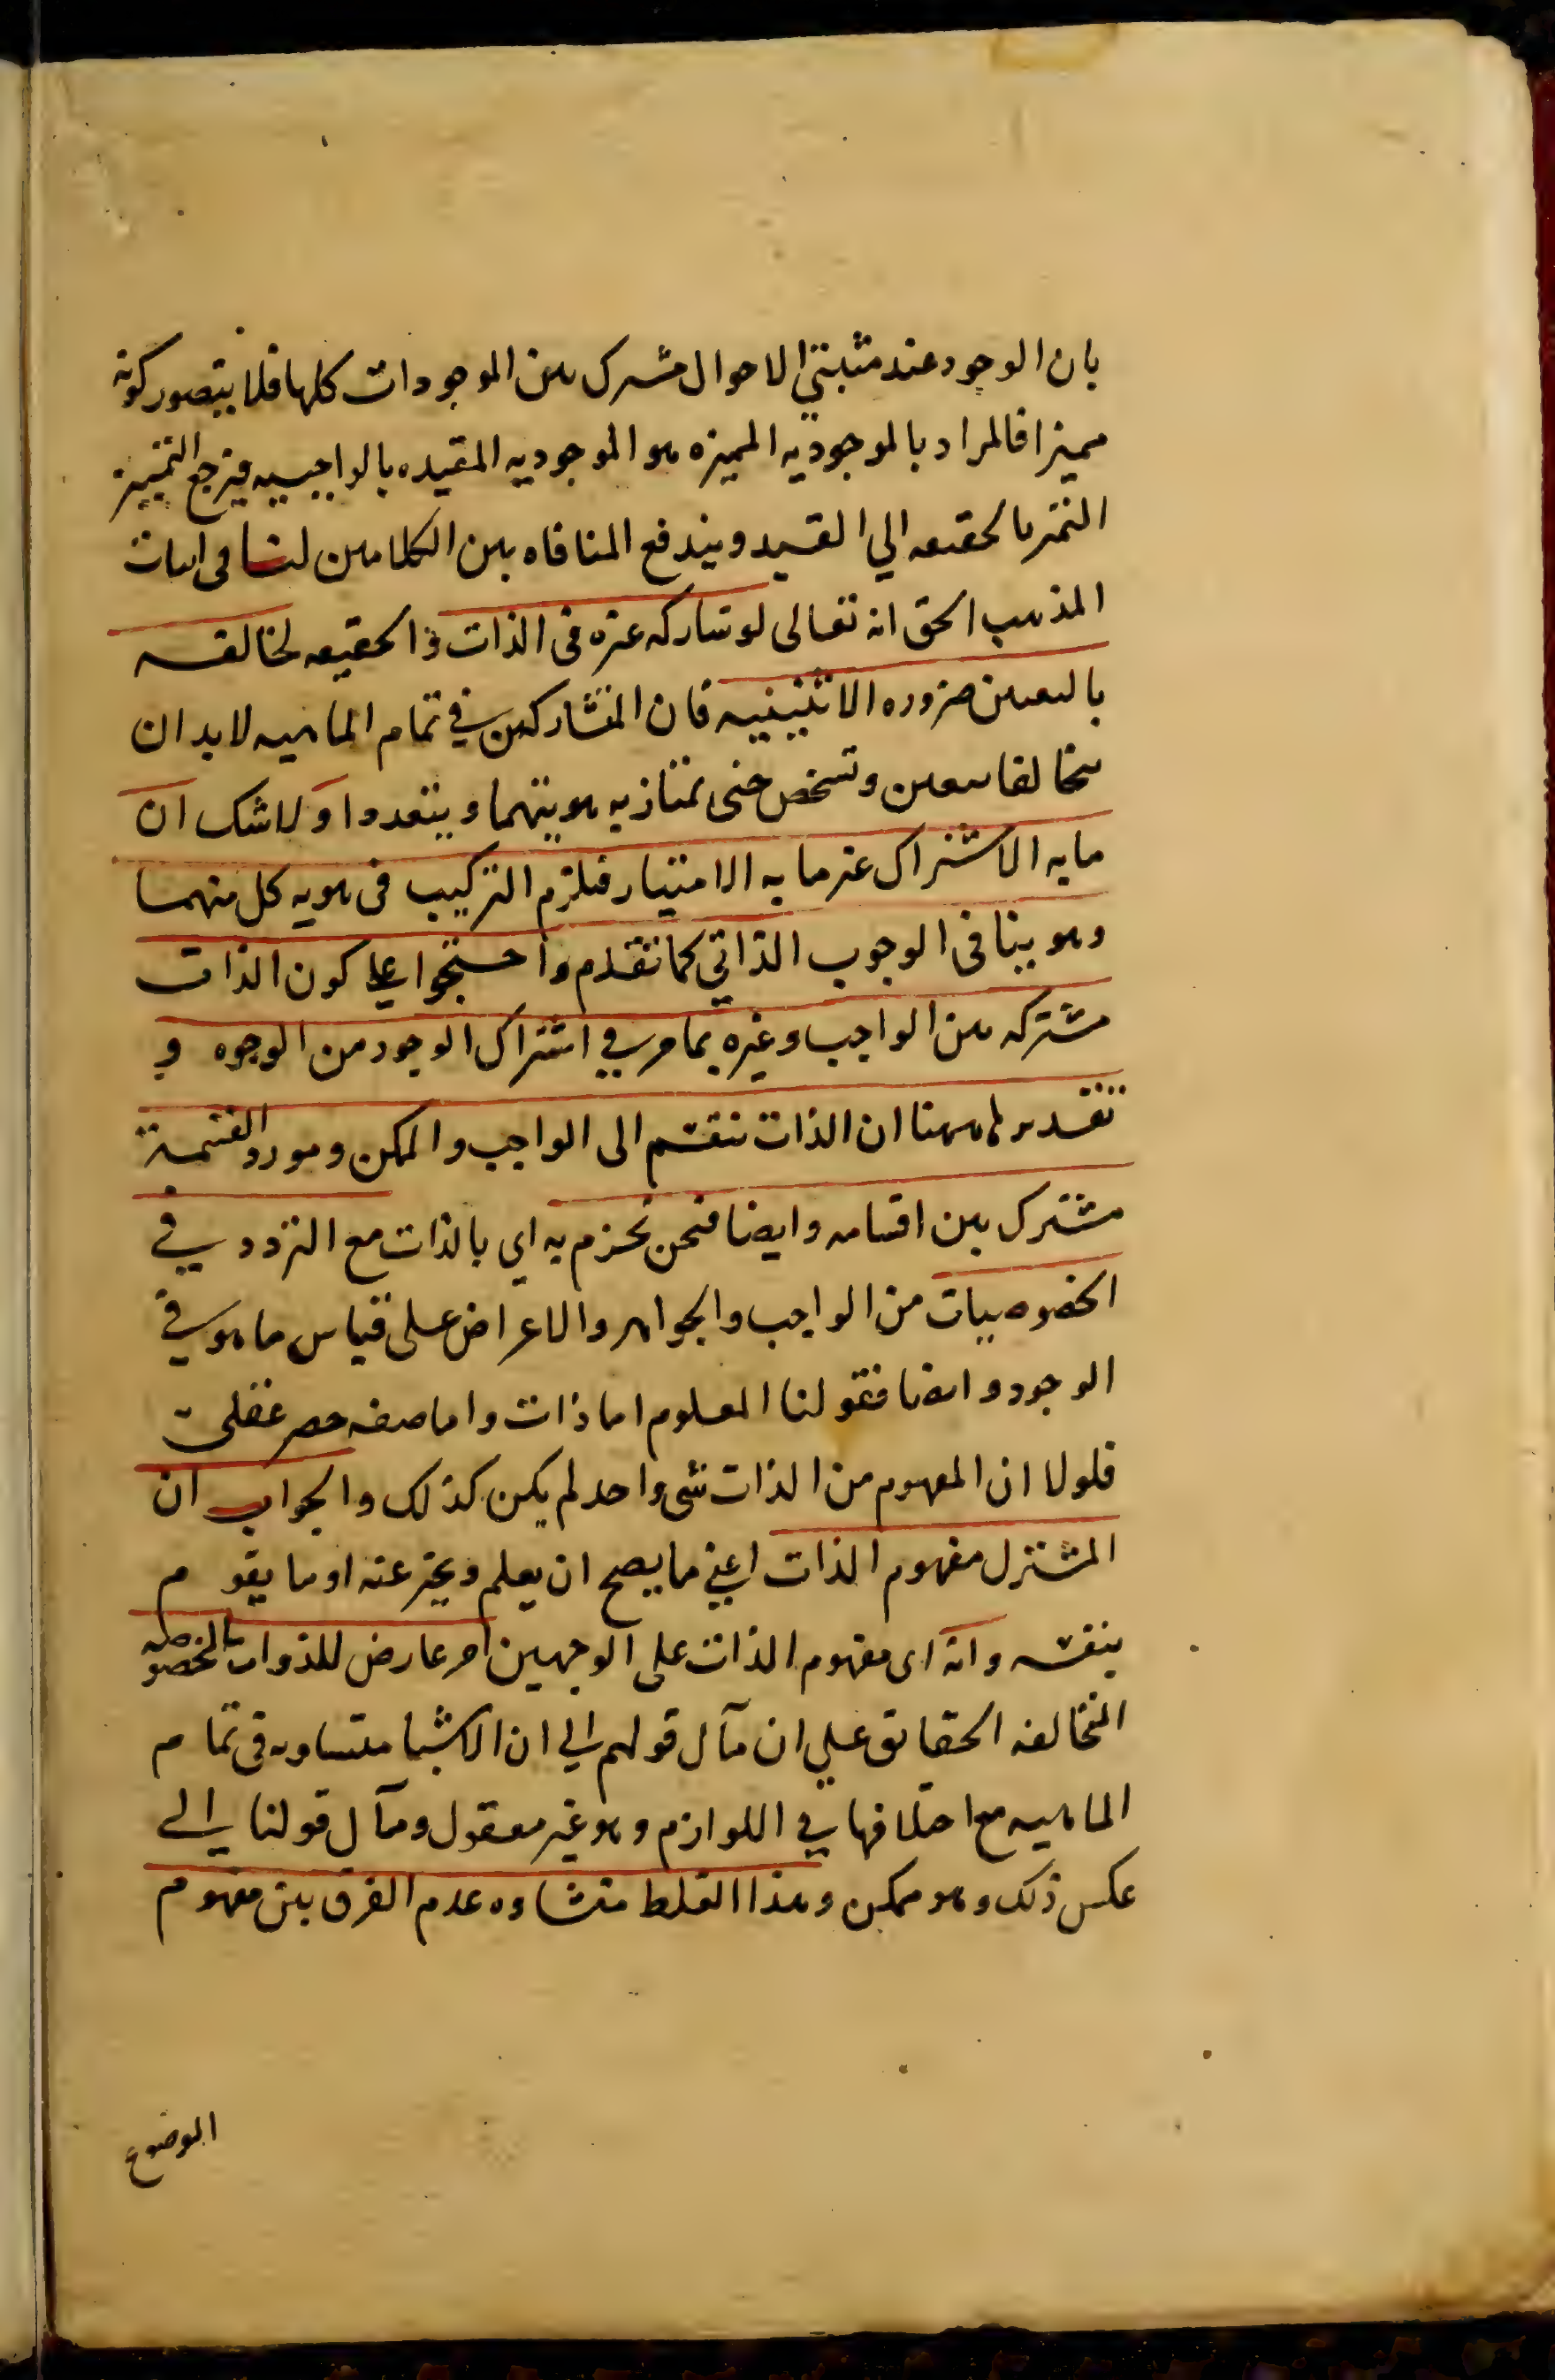 بان الوجود عند مثبتي الاحوال مشترك بين الموجودات كلها فلا يتصور كونه
مميزا فالمراد بالموجوديه المميزه هو الموجوديه المقيده بالواجبيه فيرجع التمييز
التميز بالحقيقه الي القيد ويندفع المنافاه بين الكلامين لنا في اثبات
المذهب الحق انه تعالى لو شاركه غيره في الذات والحقيقه لخالفه
بالتعين ضروره الاثنينيه فان المتشاركين في تمام الماهيه لابد ان
يتخالفا بتعين وتشخص حتى يمتاز به هويتهما ويتعددا ولا شك ان
مابه الاشتراك غير مابه الامتياز فيلزم التركيب في هويه كل منهما
وهو ينافى الوجوب الذاتي كما تقدم واحتجوا على كون الذات
مشتركه بين الواجب وغيره بما مر في اشتراك الوجود من الوجوه و
تقديرها ههنا ان الذات تنقسم الى الواجب والممكن ومورد القسمة
مشترك بين اقسامه وايضا فنحن نجزم به اي بالذات مع التردد في
الخصوصيات من الواجب والجواهر والاعراض على قياس ما هو في
الوجود وايضا فقولنا المعلوم اما ذات واما صفه حصر عقلي
فلولا ان المفهوم من الذات شى واحد لم يكن كذلك والجواب ان
المشترك مفهوم الذات اعني ما يصح ان يعلم ويخبر عنه او ما يقوم
بنفسه وانه اى مفهوم الذات على الوجهين امر عارض للذوات المخصوصه
المتخالفه الحقايق على ان مآل قولهم الي ان الاشيا متساويه في تمام
الماهيه مع اختلافها في اللوازم وهو غير معقول ومآل قولنا الى
عكس ذلك وهو ممكن وهذا الغلط منشاوه عدم الفرق بين مفهوم
الموضوع